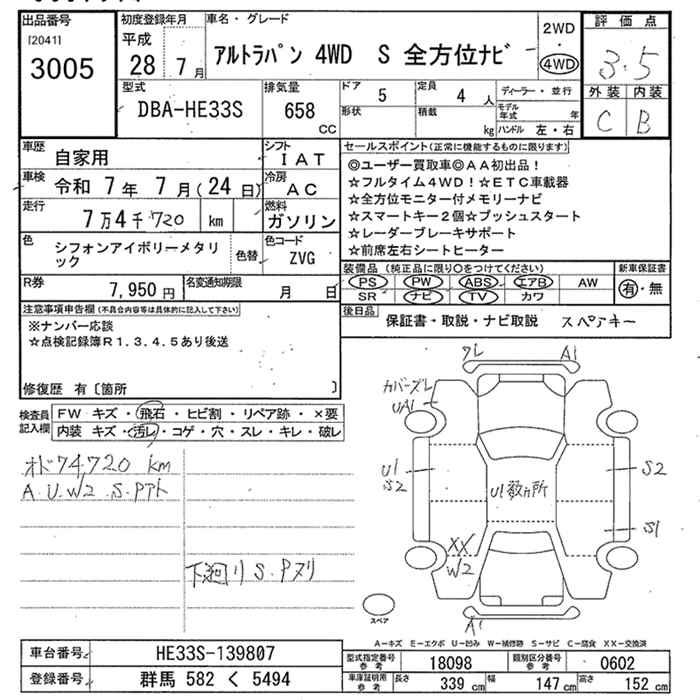 出品番号
[2041]
3005
初度登録年月
平成
28 7月
車名・グレード
アルトラパン 4WD S 全方位ナビ
2WD
・
4WD
評価点
3.5
外装 内装
C B
型式
DBA-HE33S
排気量
658
CC
ドア 5
定員 4 人
形状
積載
kg
ディーラー・並行
モデル年式 年
ハンドル 左・右
車歴
自家用
シフト
IAT
車検
令和 7年 7月(24日)
冷房
AC
走行
7万4千720 km
燃料
ガソリン
色
シフォンアイボリーメタリ
ック
色替
色コード
ZVG
R券
7,950円
名変通知期限
月 日
セールスポイント(正常に機能するものに限ります)
◎ユーザー買取車◎AA初出品!
☆フルタイム4WD!☆ETC車載器
☆全方位モニター付メモリーナビ
☆スマートキー2個☆プッシュスタート
☆レーダーブレーキサポート
☆前席左右シートヒーター
装備品(純正品に限り○をつけてください)
PS PW ABS エアB AW
SR ナビ TV カワ
新車保証書
有・無
後日品
保証書・取説・ナビ取説 スペアキー
注意事項申告欄(不具合内容等は具体的に記入して下さい)
※ナンバー応談
☆点検記録簿R1.3.4.5あり後送
修復歴 有〔箇所 〕
検査員
記入欄
FW キズ・飛石・ヒビ割・リペア跡・×要
内装 キズ・汚レ・コゲ・穴・スレ・キレ・破レ
オド74,720 km
A.U.W2 S.Pアト
下廻リ S.Pヌリ
ワレ
A1
カバーズレ
UA1
U1
S2
U1数ヵ所
S2
S1
XX
W2
A1
スペア
A-キズ E-エクボ U-凹み W-補修跡 S-サビ C-腐食 XX-交換済
車台番号
HE33S-139807
登録番号
群馬 582 く 5494
型式指定番号
参考
18098
類別区分番号
参考
0602
車庫証明用
参考
長さ 339 cm
幅 147 cm
高さ 152 cm